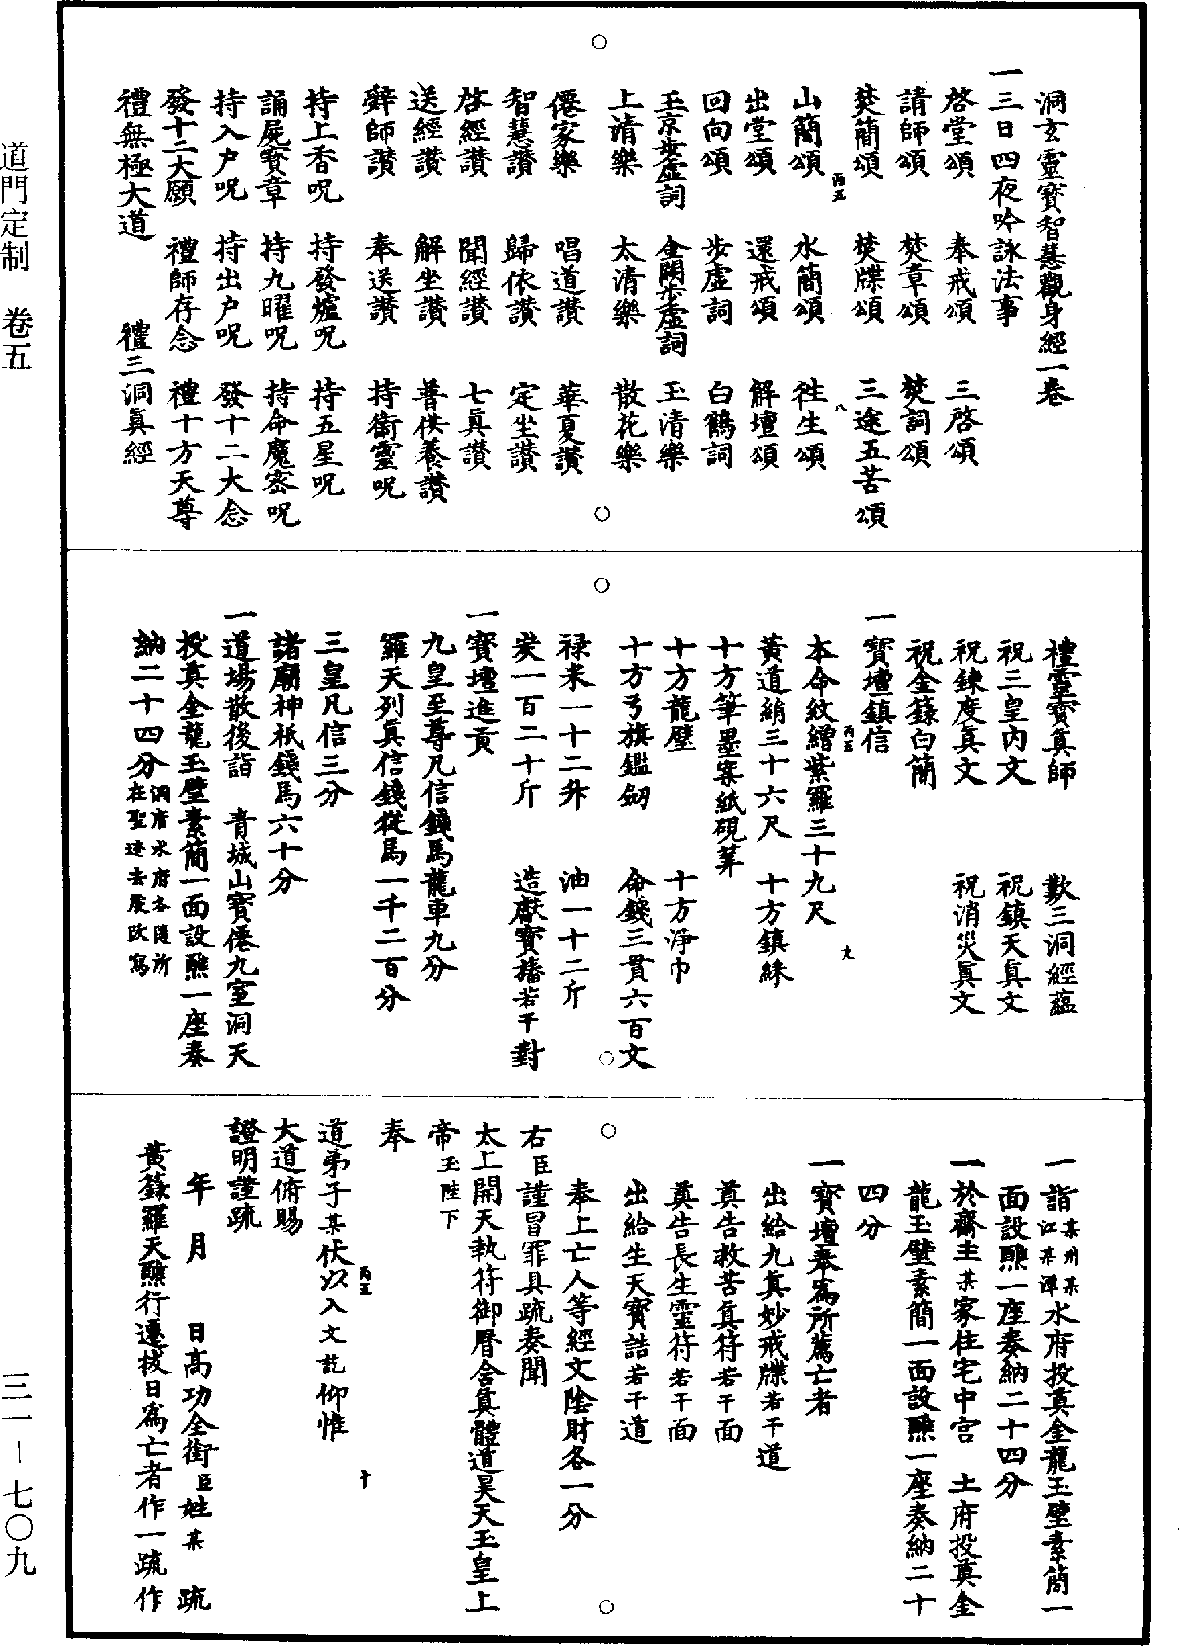 洞玄靈寶智慧觀身經一卷
一三日四夜吟詠法事
啓堂頌　奉戒頌　三啓頌
請師頌　焚章頌　焚詞頌
焚簡頌　焚牒頌　三途五苦頌
丙五　八
山簡頌　水簡頌　徃生頌
出堂頌　還戒頌　解壇頌
回向頌　步虛詞　白鶴詞
玉京步虛詞　金闕步虛詞　玉清樂
上清樂　太清樂　散花樂
僊家樂　唱道讚　華夏讚
智慧讚　歸依讚　定坐讚
啓經讚　聞經讚　七眞讚
送經讚　解坐讚　普供養讚
辭師讚　奉送讚　持衛靈呪
持上香呪　持發爐呪　持五星呪
誦屍寶章　持九曜呪　持命魔密呪
持入户呪　持出户呪　發十二大念
發十二大願　禮師存念　禮十方天尊
禮無極大道　禮三洞眞經
禮靈寶眞師　歎三洞經蘊
祝三皇内文　祝鎮天眞文
祝鍊度眞文　祝消災眞文
祝金籙白簡
一寶壇鎮信
丙五　九
本命紋繒紫羅三十九尺
黄道綃三十六尺　十方鎮綵
十方筆墨案紙硯筭
十方龍壁　十方淨巾
十方弓旗鑑劒　命錢三貫六百文
禄米一十二升　油一十二斤
炭一百二十斤　造獻寶旛若干對
一寶壇進貢
九皇至尊凡信錢馬龍車九分
羅天列眞信錢從馬一千二百分
三皇凡信三分
諸廟神祇錢馬六十分
一道場散後詣　青城山寶僊九室洞天
投奠金龍玉璧素簡一面設醮一座奏
納二十四分洞府水府各隨所在聖迹去處改寫
一詣某州某江某潭水府投奠金龍玉璧素簡一
面設醮一座奏納二十四分
一於齋主某家住宅中宫　土府投奠金
龍玉璧素簡一面設醮一座奏納二十
四分
一寶壇奉爲所薦亡者
出給九眞妙戒牒若干道
奠告救苦眞符若干面
奠告長生靈符若干面
出給生天寶誥若干道
奉上亡人等經文陰財各一分
右臣謹冒罪具疏奏聞
太上開天執符御曆含眞體道昊天玉皇上
帝玉陛下
奉
道弟子某伏以入文訖仰惟
丙五　十
大道俯賜
證明謹疏
年　月　日高功全銜臣姓某　疏
黄籙羅天醮行遷拔日爲亡者作一疏作
道門定制　卷五
三一－七〇九